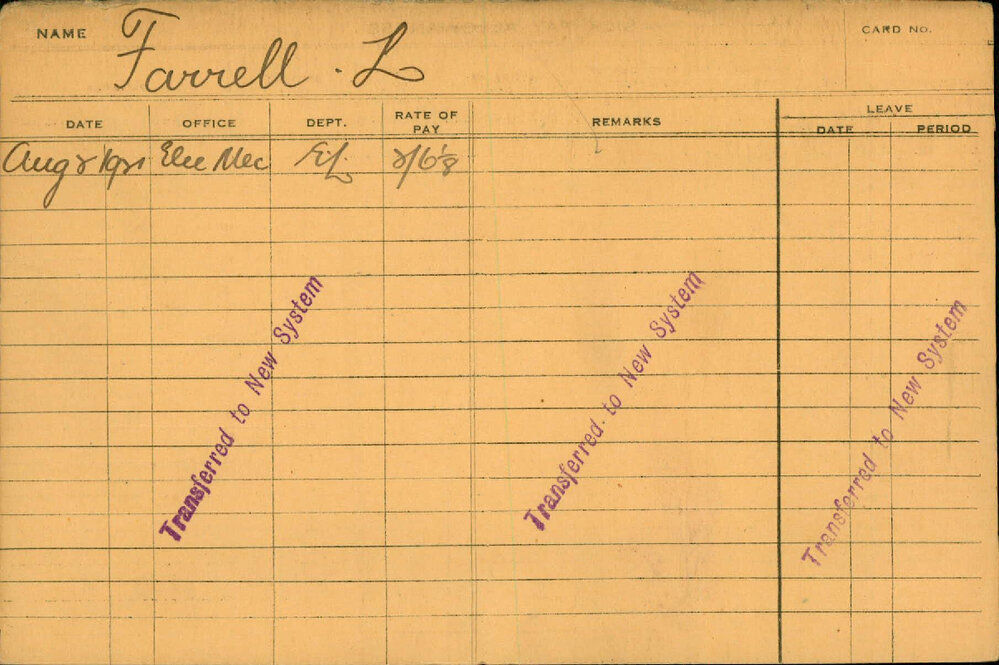 NAME Farrell . L CARD NO.
DATE OFFICE DEPT. RATE OF PAY REMARKS LEAVE
DATE PERIOD
Aug Elec Mec
Transferred to New System
Transferred to New System
Transferred to New System